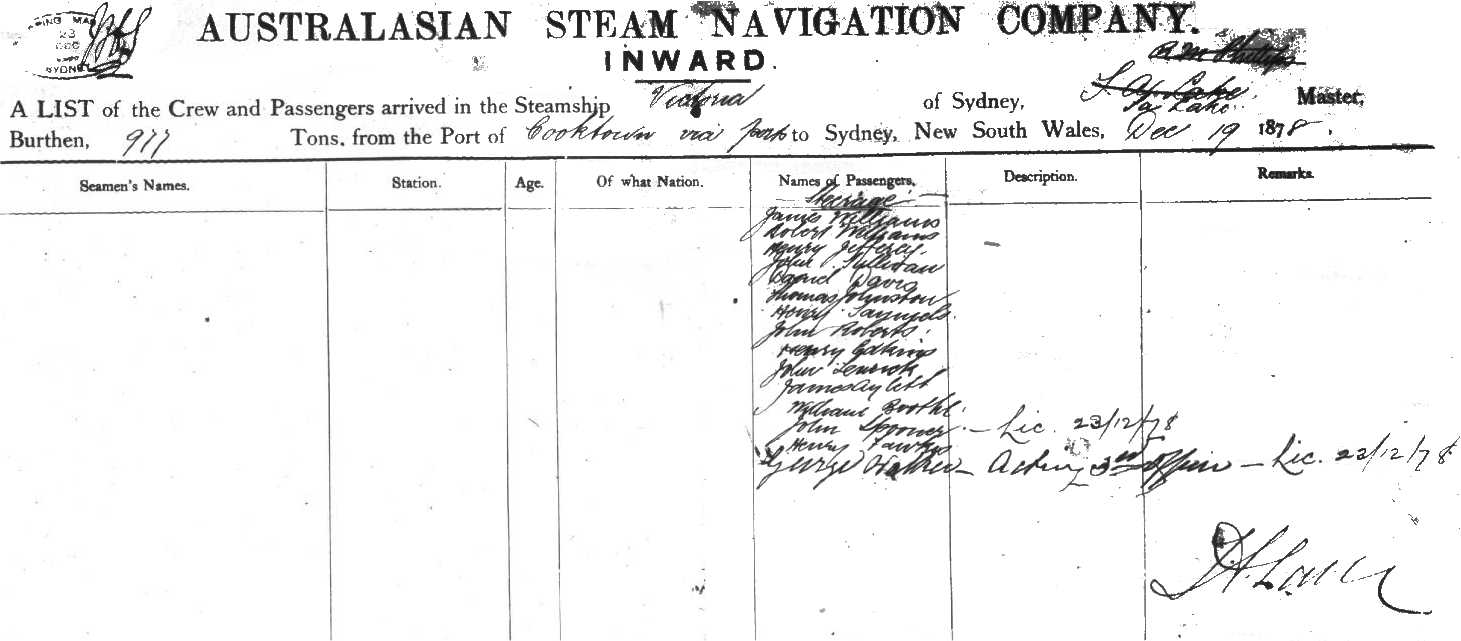 23
DEC
SYDNEY
AUSTRALASIAN STEAM NAVIGATION COMPANY.
INWARD.
A LIST of the Crew and Passengers arrived in the Steamship Victoria of Sydney, Lake Master,
Burthen, 977 Tons, from the Port of Cooktown via ports to Sydney, New South Wales, Dec 19 1878.
Seamen's Names. Station. Age. Of what Nation. Names of Passengers. Description. Remarks.
Steerage
James Williams
Robert Williams
Henry Jefferey
John Sullivan
David
Thomas Johnston
Henry Samuels
John Roberts
Henry
John
James Aylett
William Booth
John Spooner - Lic. 23/12/78
Henry Fawkes
George - Acting 3rd officer - Lic. 23/12/78